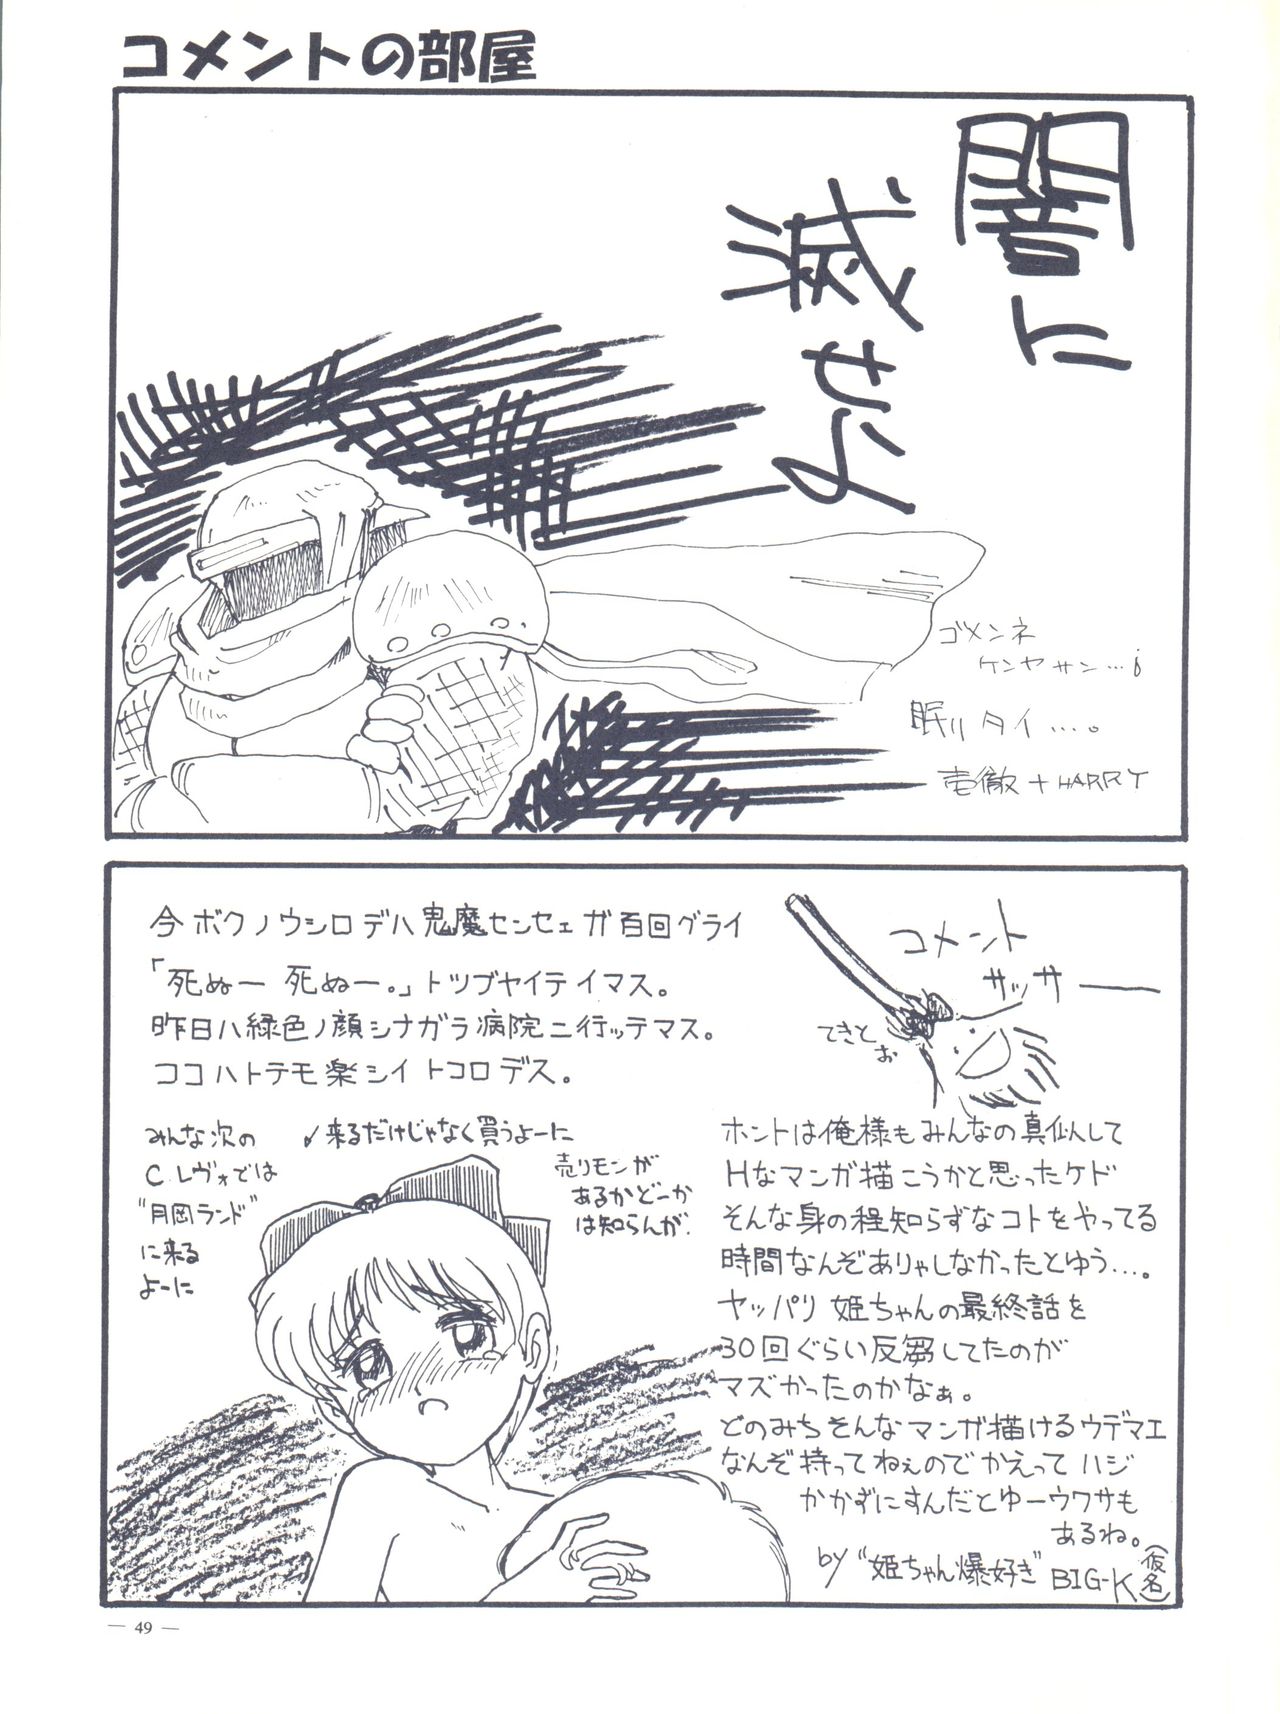 コメントの部屋
闇に
滅せよ
ゴメンネ
ケンヤサン…
眠リタイ…。
壱徹+HARRY
今ボクノウシロデハ鬼魔センセェガ百回グライ
「死ぬー死ぬー。」トツブヤイテイマス。
昨日ハ緑色ノ顔シナガラ病院ニ行ッテマス。
ココハトテモ楽シイトコロデス。
コメント
サッサー
てきとぉ
みんな次の
C.レヴォでは
"月岡ランド"
に来る
よーに
来るだけじゃなく買うよーに
売りモンが
あるかどーか
は知らんが.
ホントは俺様もみんなの真似して
Hなマンガ描こうかと思ったケド
そんな身の程知らずなコトをやってる
時間なんぞありゃしなかったとゆう…。
ヤッパリ姫ちゃんの最終話を
30回ぐらい反芻してたのが
マズかったのかなぁ。
どのみちそんなマンガ描けるウデマエ
なんぞ持ってねぇのでかえってハジ
かかずにすんだとゆーウワサも
あるね。
by "姫ちゃん爆好き" BIG-K(仮名)
— 49 —